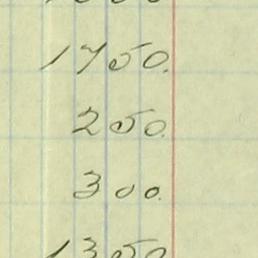 1750.
250.
300.
1350